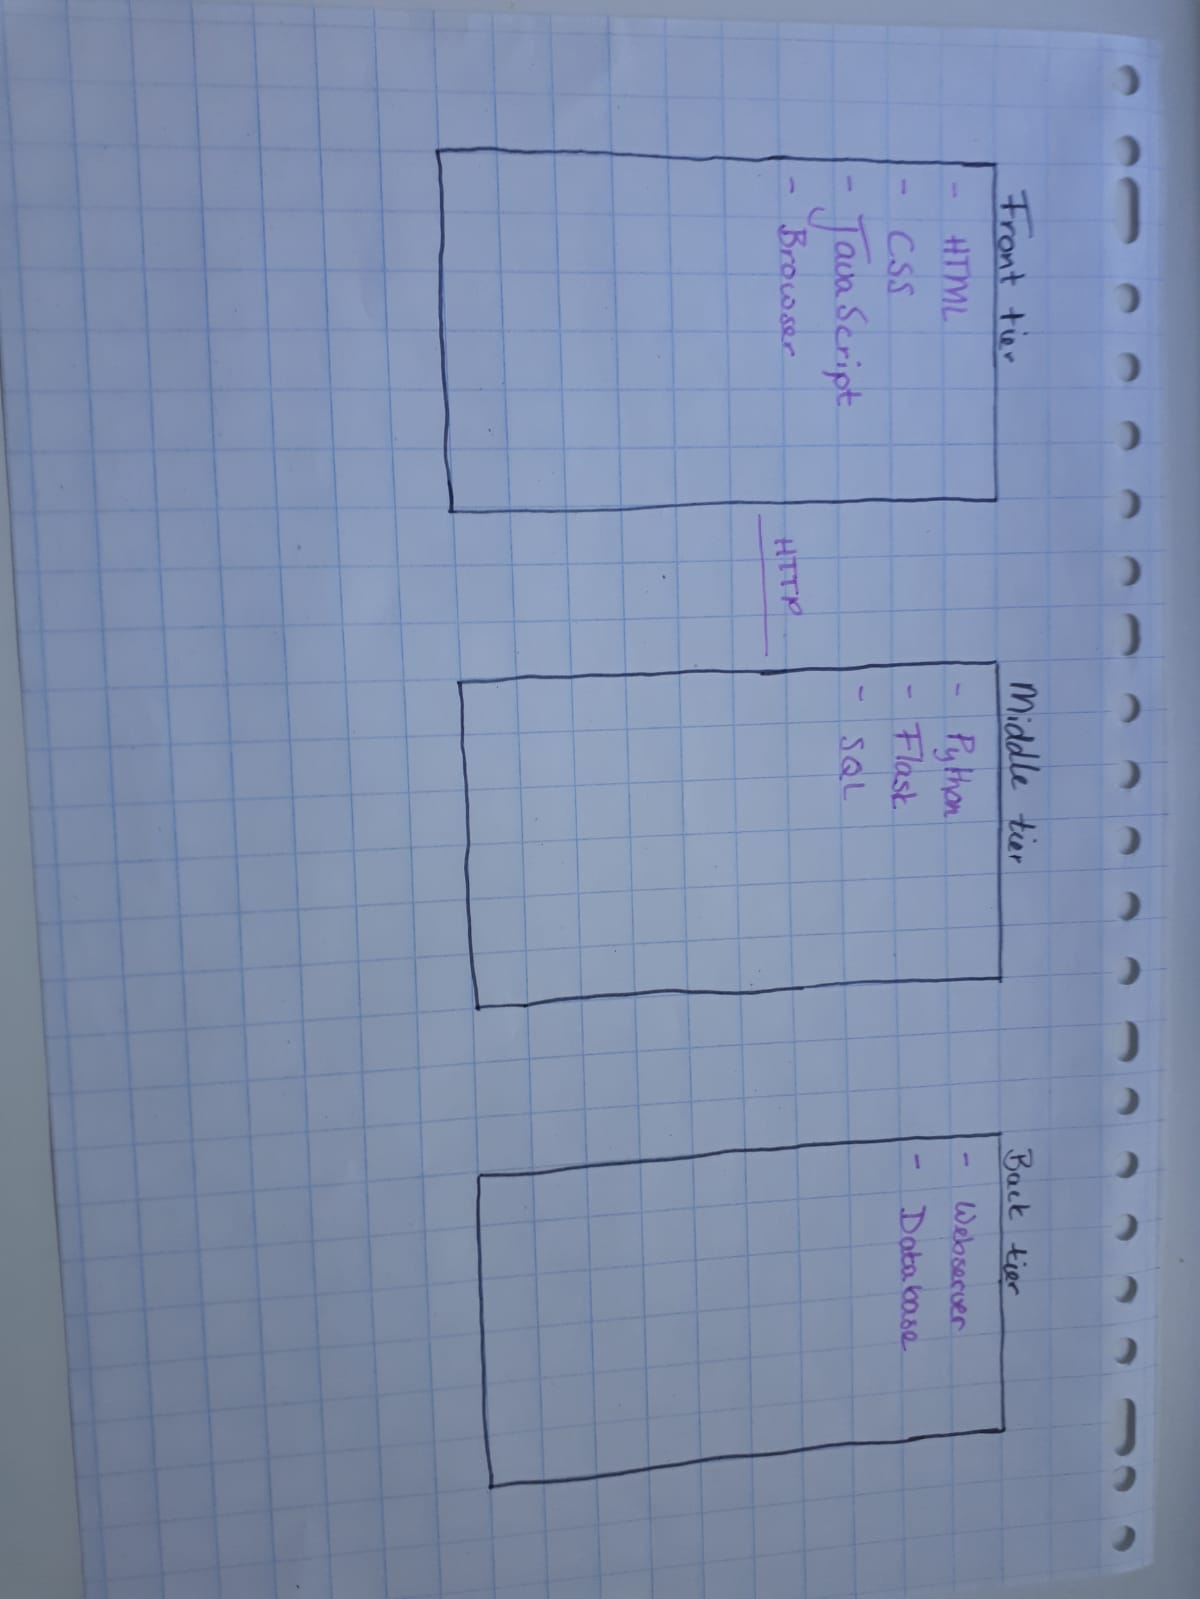 Front tier
- HTML
- CSS
- JavaScript
- Browser
HTTP
Middle tier
- Python
- Flask
- SQL
Back tier
- Webserver
- Database